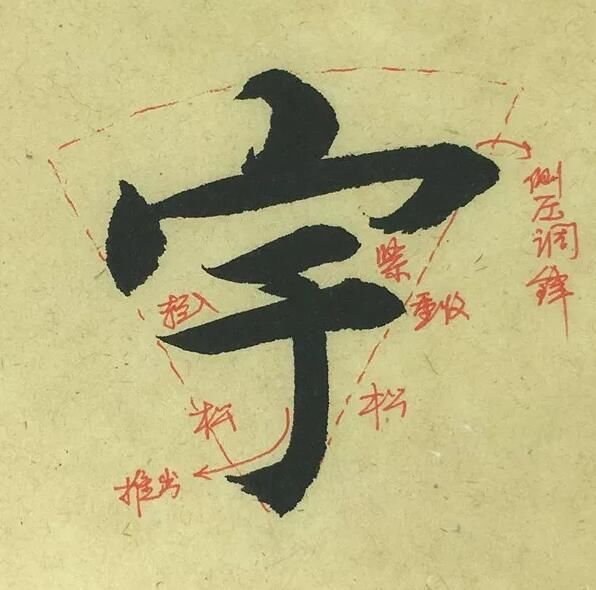 字
侧压调锋
紧
轻入
重收
松
松
推出